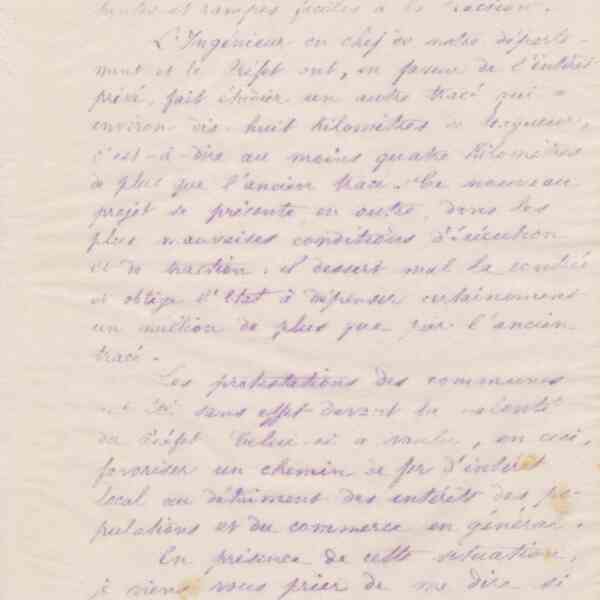 et rampes faciles à la traction.
L'Ingénieur en chef de notre départe-
ment et le Préfet ont, en faveur de l'intérêt
privé, fait étudier un autre tracé qui a
environ dix-huit kilomètres de longueur,
c'est-à-dire au moins quatre kilomètres
de plus que l'ancien tracé. Ce nouveau
projet se présente, en outre, dans les
plus mauvaises conditions d'exécution
et de traction, il dessert mal la contrée
et oblige l'Etat à dépenser certainement
un million de plus que par l'ancien
tracé.
Les protestations des communes
ont été sans effet devant la volonté
du Préfet. Celui-ci a voulu, en ceci,
favoriser un chemin de fer d'intérêt
local au détriment des intérêts des po-
pulations et du commerce en général.
En présence de cette situation,
je viens vous prier de me dire si